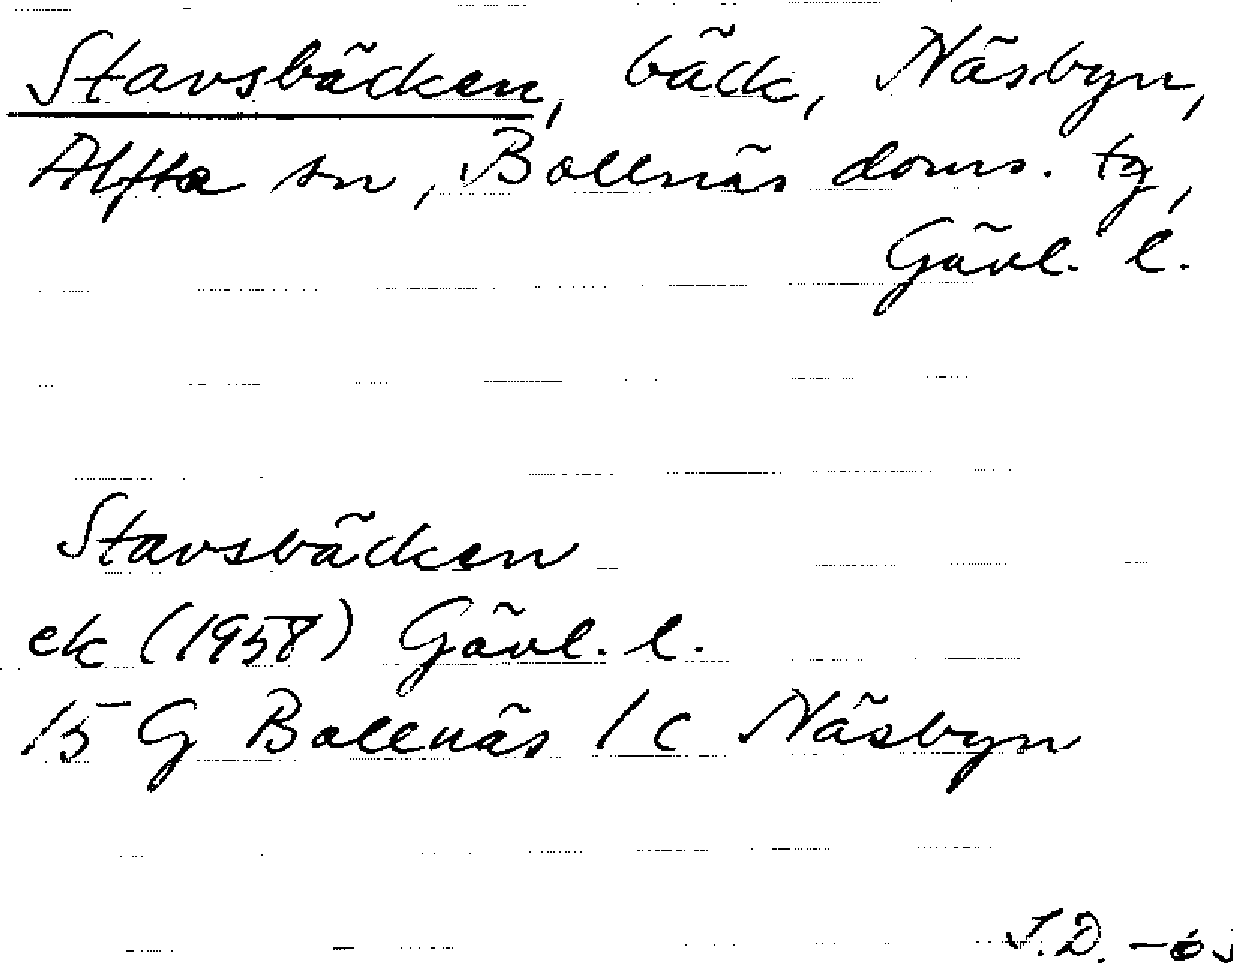 Stavsbäcken, bäck, Näsbyn,
Alfta sn, Bollnäs doms. tg,
Gävl. l.
Stavsbäcken
ek (1958) Gävl. l.
15 G Bollnäs 1 c Näsbyn
J.D.